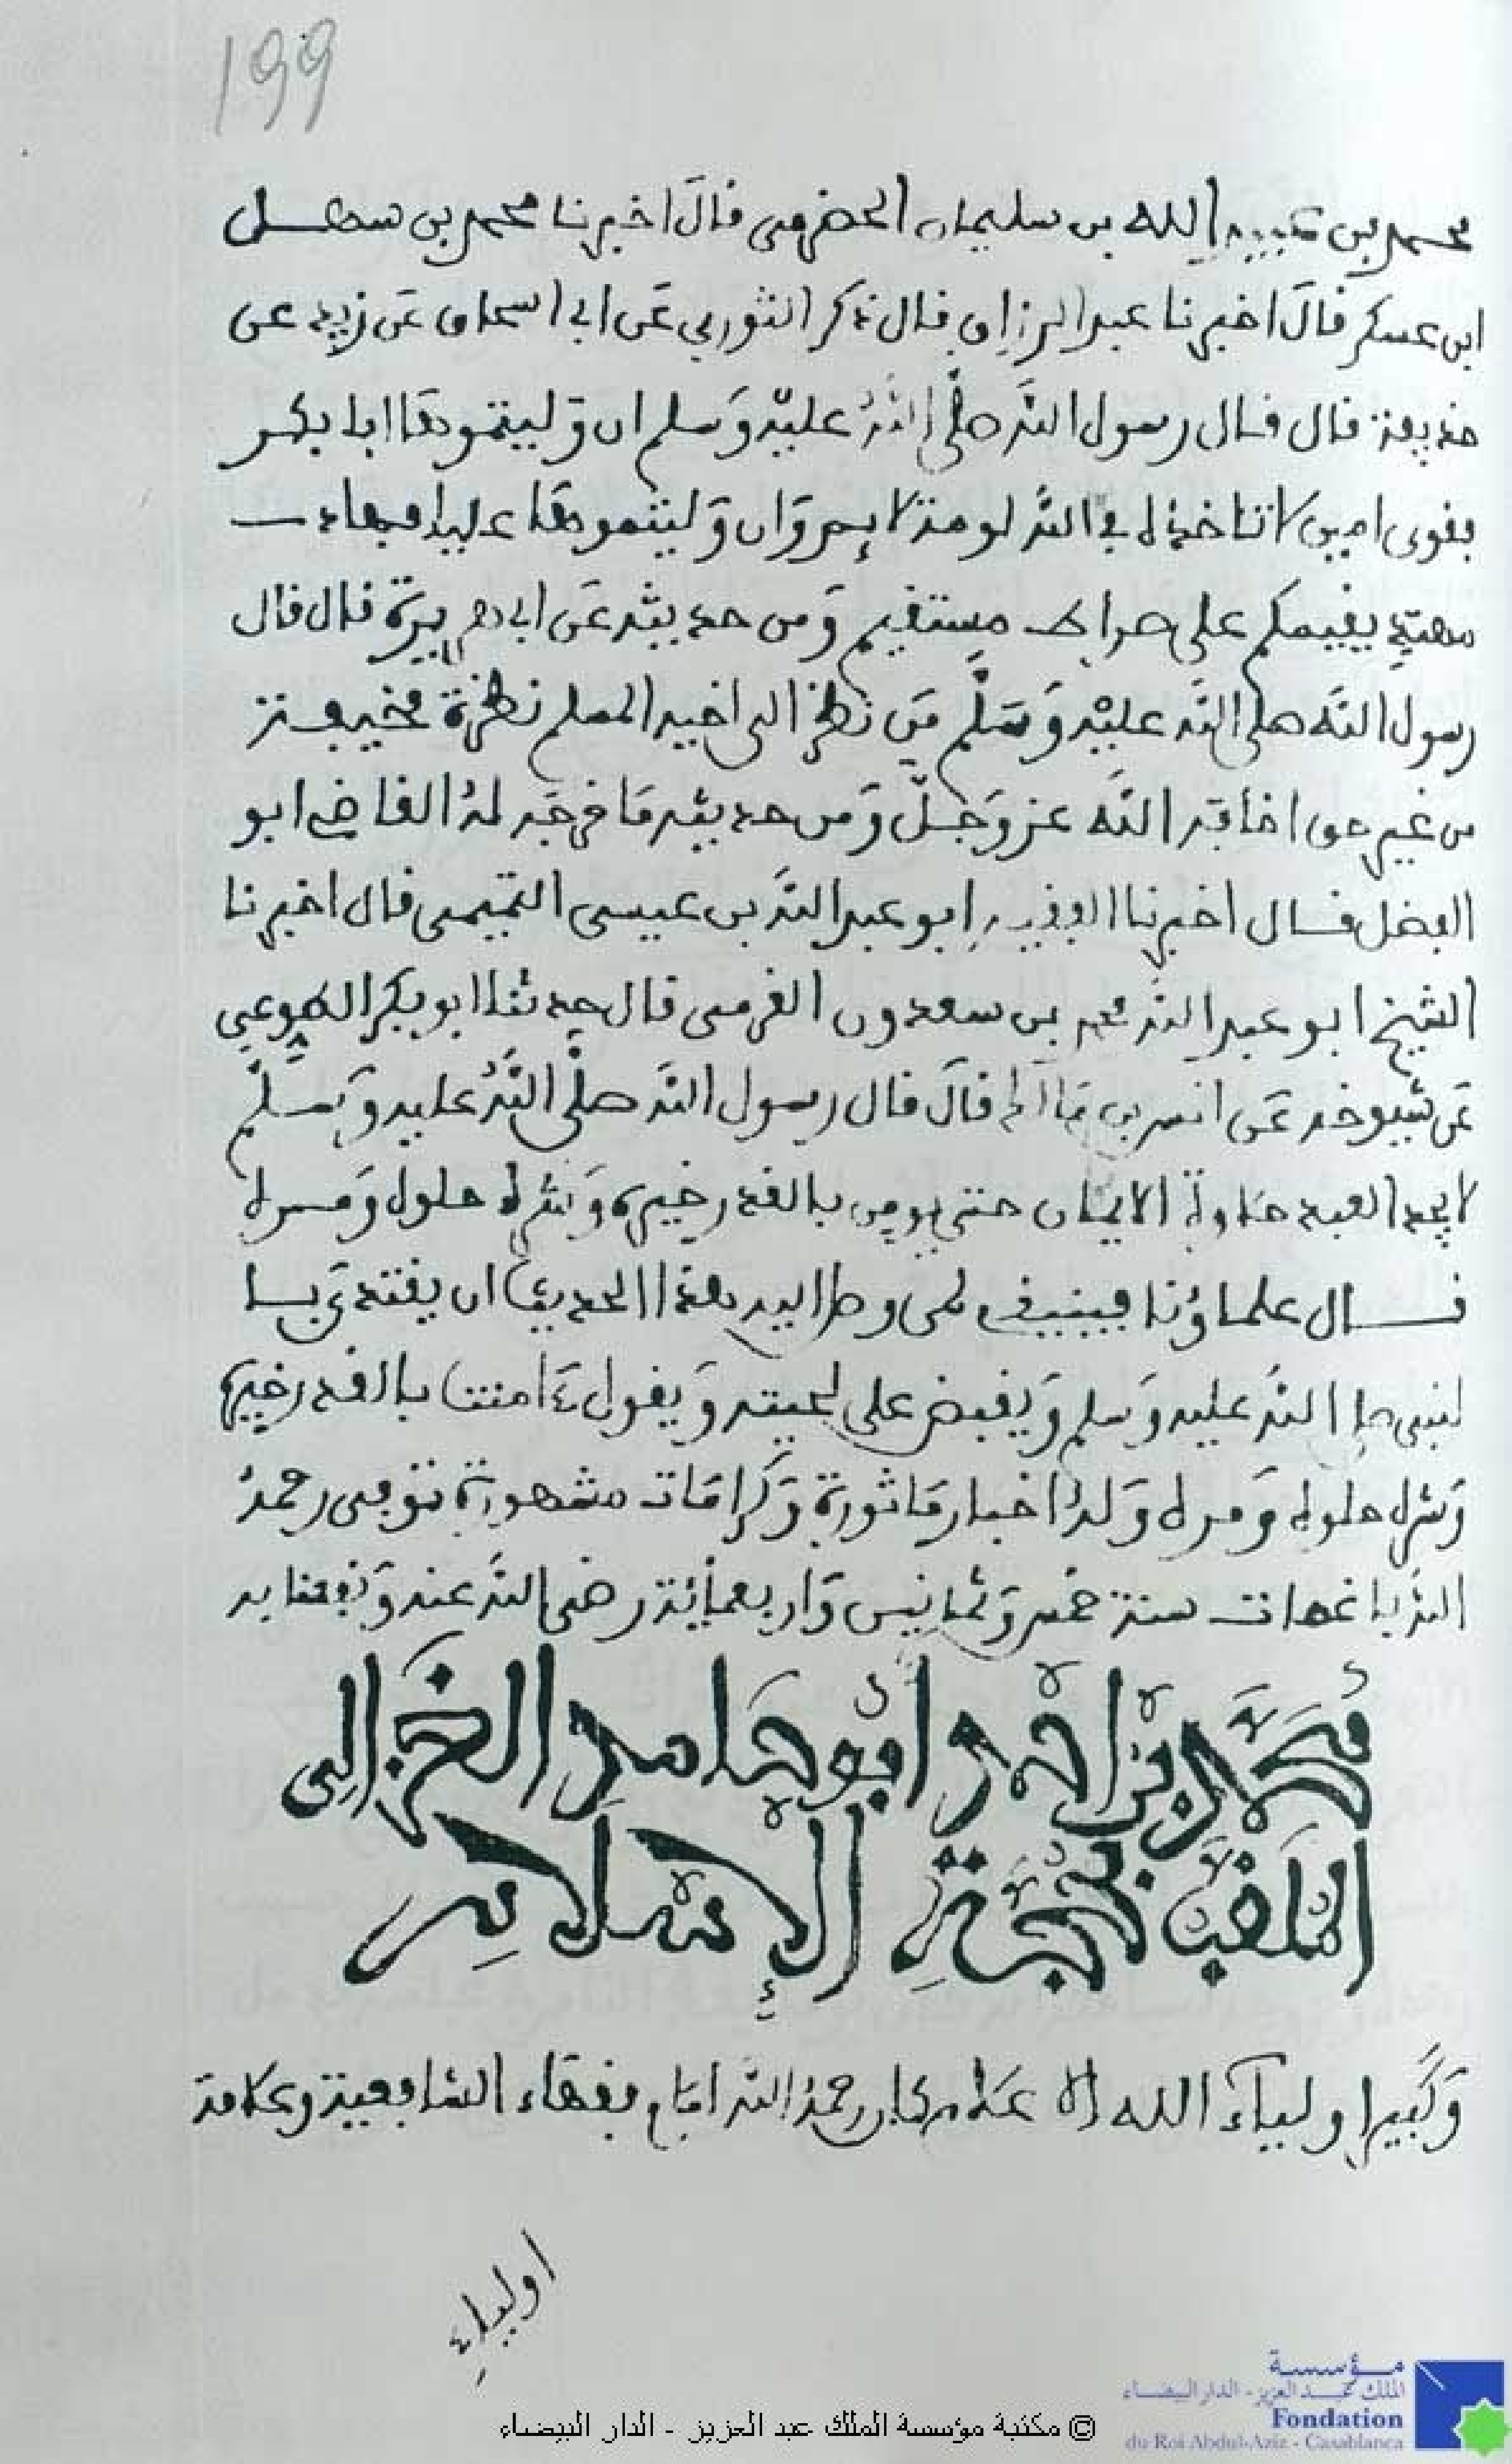 199
محمد بن عبيد الله بن سليمان الحضرمي قال اخبرنا محمد بن سهل
ابن عسكر قال اخبرنا عبد الرزاق قال ذكر الثوري عن ابي اسحاق عن زيد عن
حذيفة قال قال رسول الله صلى الله عليه وسلم ان وليتموها ابا بكر
فقوي امين لا تاخذه في الله لومة لايم وان وليتموها عليا فهاد
مهتد يقيمكم على صراط مستقيم ومن حديثه عن ابي هريرة قال قال
رسول الله صلى الله عليه وسلم من نظر الى اخيه المسلم نظرة مخيفة
من غير حق اخافه الله عز وجل ومن حديثه ما خرجه له القاضي ابو
الفضل قال اخبرنا الفقيه ابو عبد الله بن عيسى التميمي قال اخبرنا
الشيخ ابو عبد الله محمد بن سعدون القروي قال حدثنا ابو بكر المطوعي
عن شيوخه عن انس بن مالك قال قال رسول الله صلى الله عليه وسلم
لا يجد العبد حلاوة الايمان حتى يومن بالقدر خيره وشره حلوه ومره
قال علماؤنا فينبغي لمن وصل اليه هذا الحديث ان يقتدي با
لنبي صلى الله عليه وسلم ويقبض على لحيته ويقول ءامنت بالقدر خيره
وشره حلوه ومره وله اخبار ماثورة وكرامات مشهورة توفي رحمه
الله باغمات سنة خمس وثمانين واربعمائة رضي الله عنه ونفعنا به
محمد بن احمد ابو حامد الغزالي
الملقب بحجة الإسلام
وكبير اولياء الله رحمه الله امام فقهاء الشافعية وعلامة
اولياء
مؤسسة
الملك عبد العزيز - الدار البيضاء
Fondation
du Roi Abdul-Aziz - Casablanca
© مكتبة مؤسسة الملك عبد العزيز - الدار البيضاء